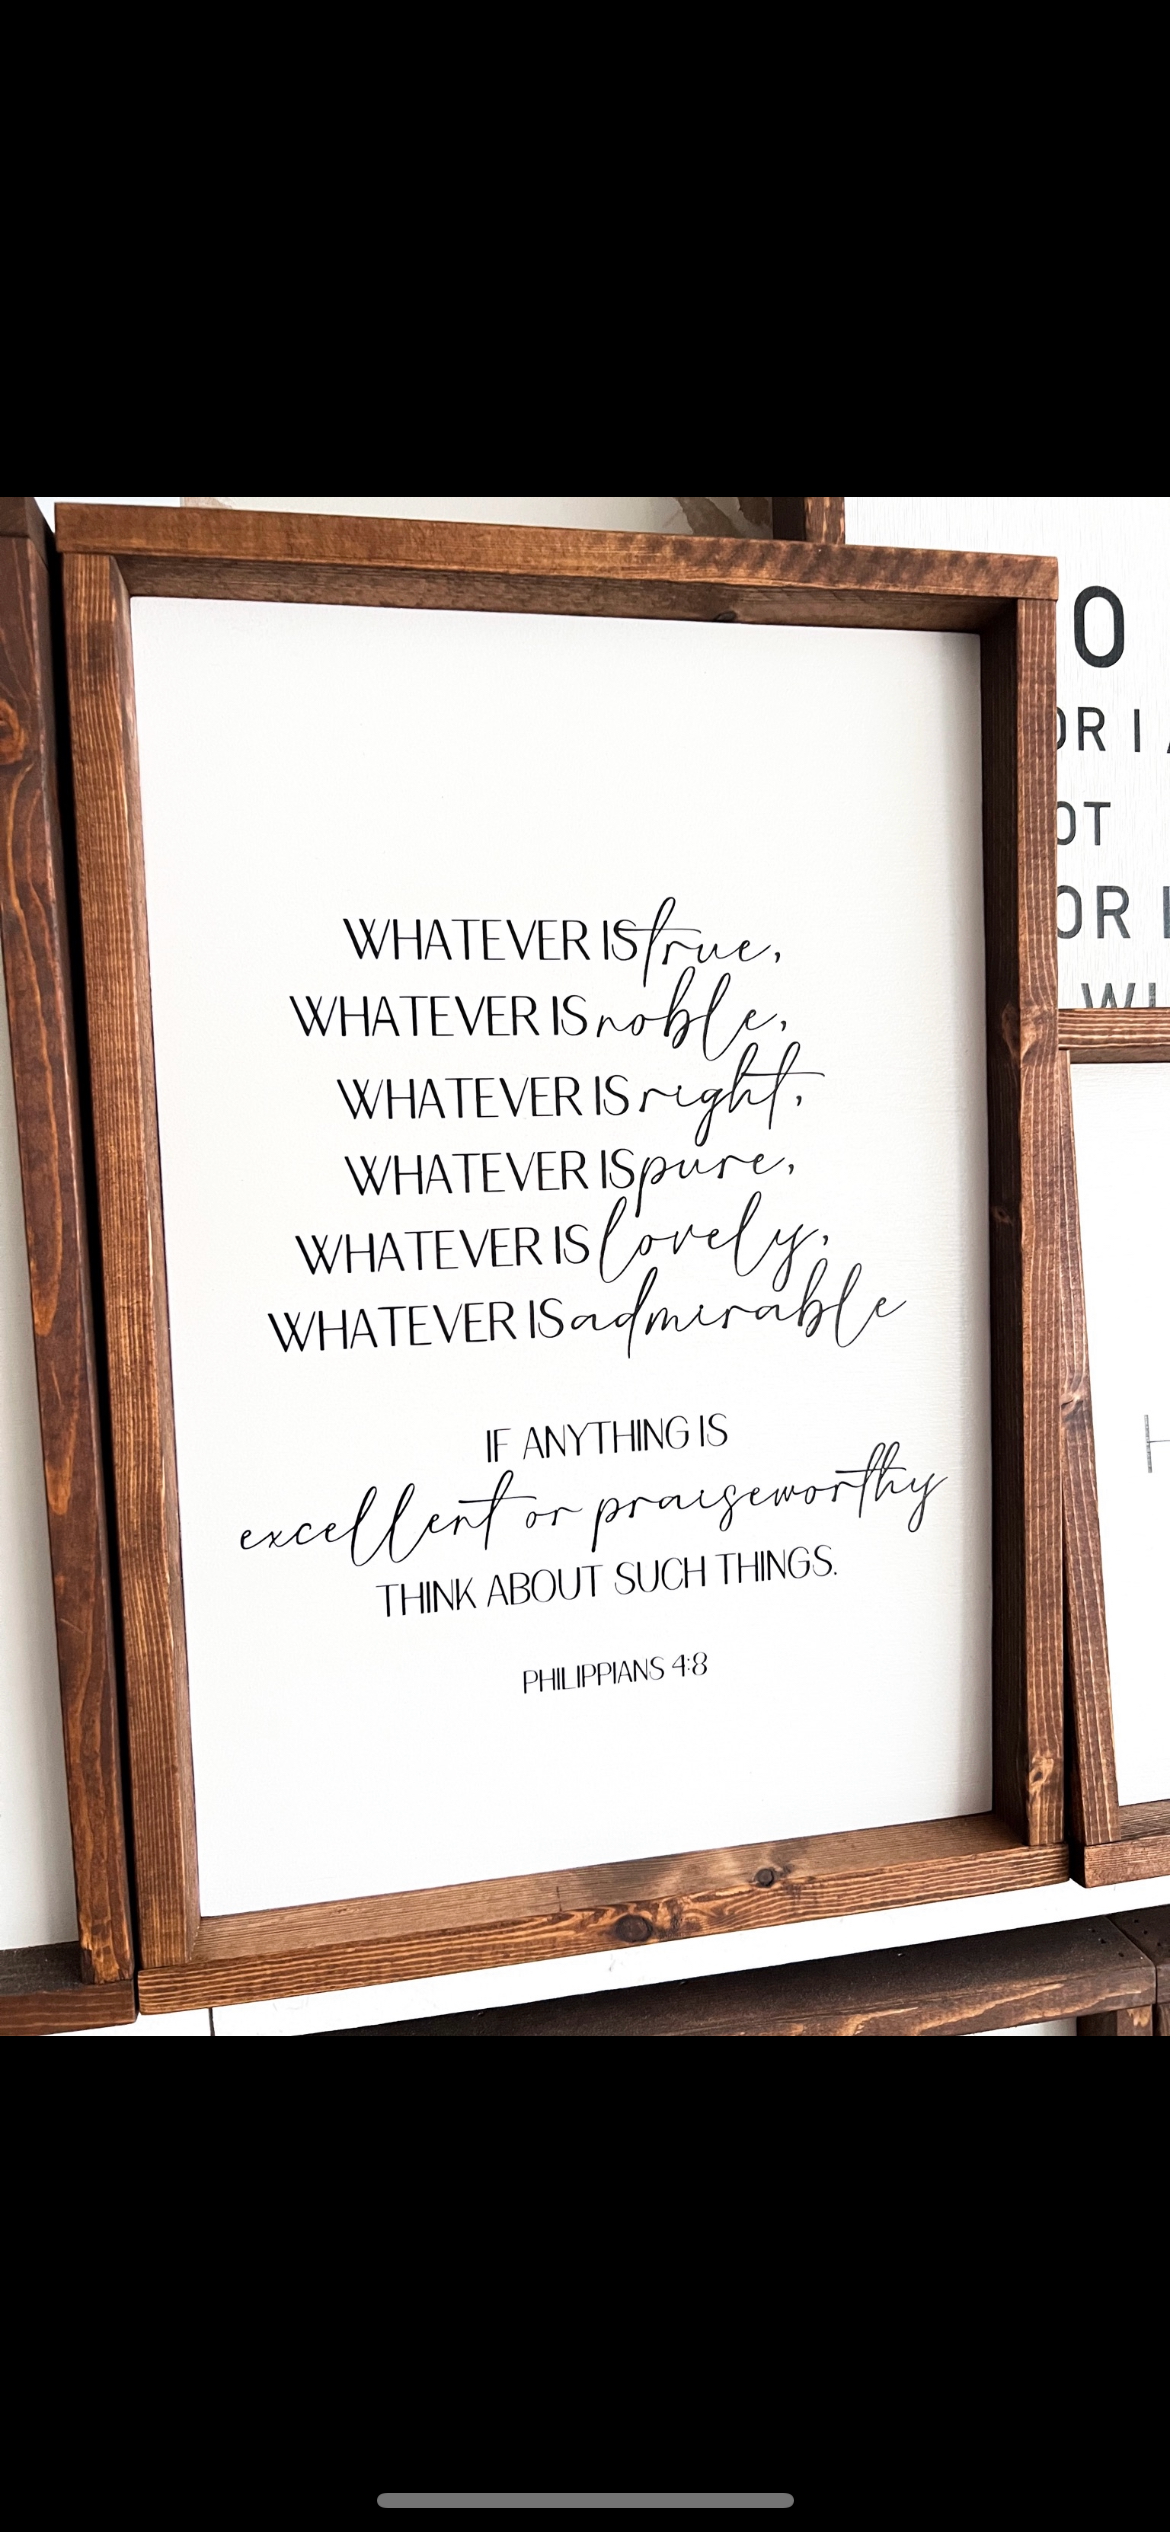 WHATEVER IS true,
WHATEVER IS noble,
WHATEVER IS right,
WHATEVER IS pure,
WHATEVER IS lovely,
WHATEVER IS admirable
IF ANYTHING IS
excellent or praiseworthy
THINK ABOUT SUCH THINGS.
PHILIPPIANS 4:8
O
OR I
OT
OR I
WI
H